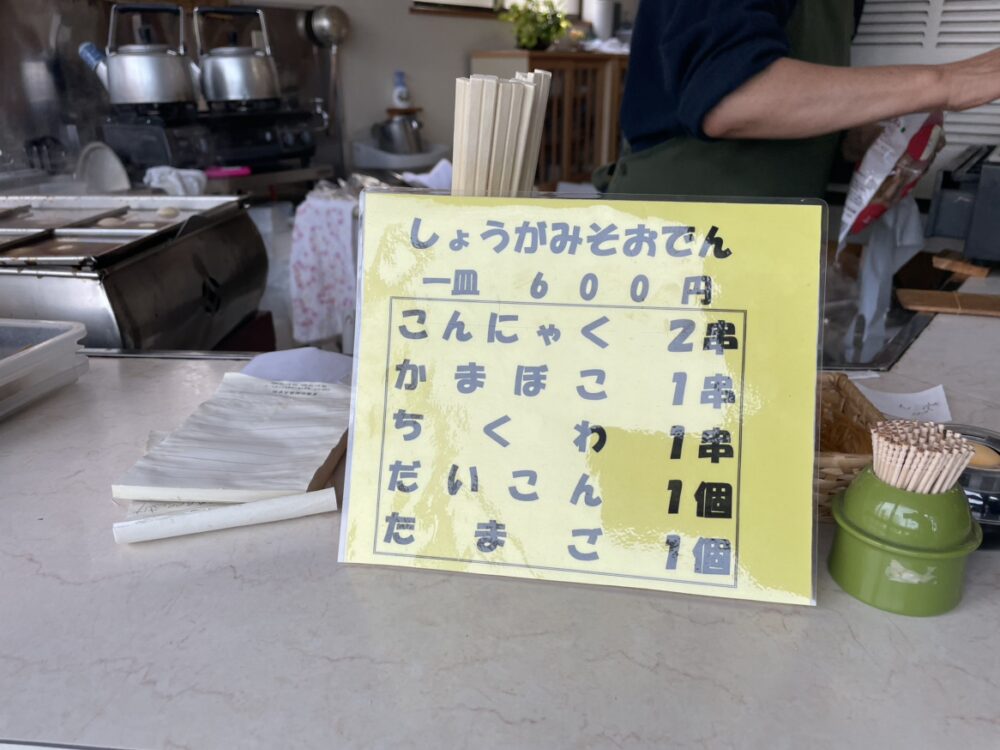 しょうがみそおでん
一皿 600円
こんにゃく 2串
かまぼこ 1串
ちくわ 1串
だいこん 1個
たまご 1個